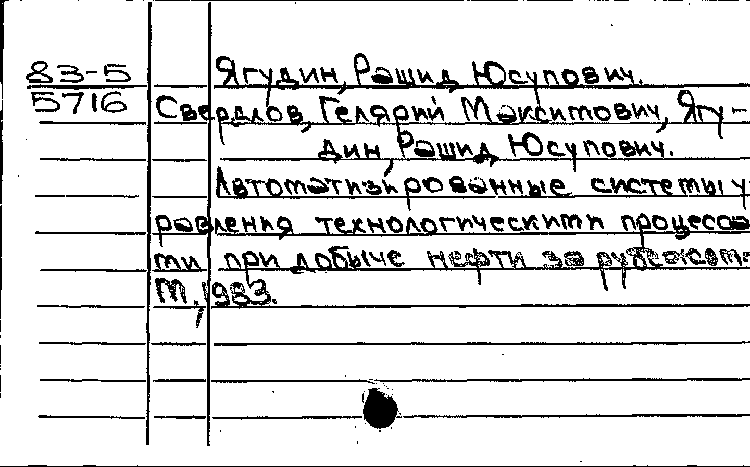 83-5 Ягудин, Рашид Юсупович.
5716 Свердлов, Гелярий Максимович, Ягу-
дин, Рашид Юсупович.
Автоматизированные системы у
равления технологическими процесса
ми при добыче нефти за рубежом.
М., 1983.